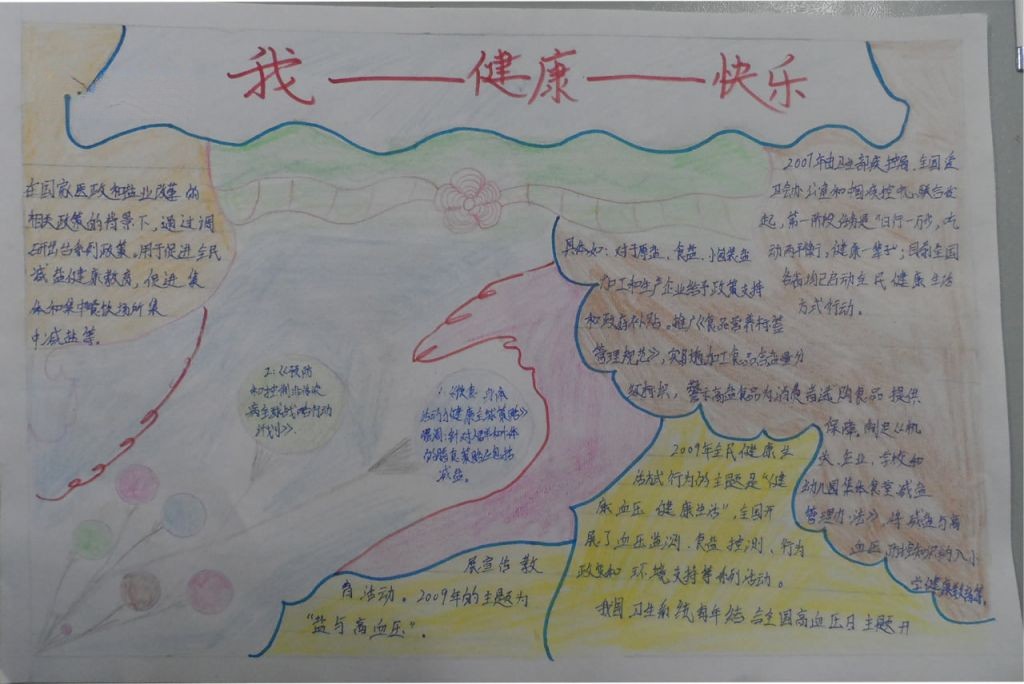 我——健康——快乐
在国家医政和盐业改革的
相关政策的背景下，通过调
研出台系列政策。用于促进全民
减盐健康教育，促进集
体和集中餐饮场所集
中减盐等。
2：《预防
和控制非传染
病全球战略行动
计划》。
1：《饮食、
活动与健康全球策略》
强调：针对人群和个体
的膳食策略应包括
减盐。
具体如：对于原盐、食盐、小包装盐
加工和生产企业给予政策支持
和政府补贴。推广《食品营养标签
管理规范》，实施加工食品
标识，警示高盐食品为消费者选购食品提供
保障。制定《机
关、企业、学校和
幼儿园集体食堂减盐
管理办法》，将减盐与高
血压防治知识纳入小
学健康教育等。
2007年由卫生部疾控局、全国爱
卫会办公室和中国疾控中心联合发
起，第一阶段活动是“日行一万步，吃
动两平衡，健康一辈子”；目前全国
各省均已启动全民健康生活
方式行动。
2009年全民健康生
活方式行动的主题是“健
康血压 健康生活”，全国开
展了血压监测、食盐控测、行为
政策和环境支持等系列活动。
我国卫生系统每年结合全国高血压日主题开
展宣传教
育活动。2009年的主题为
“盐与高血压”。